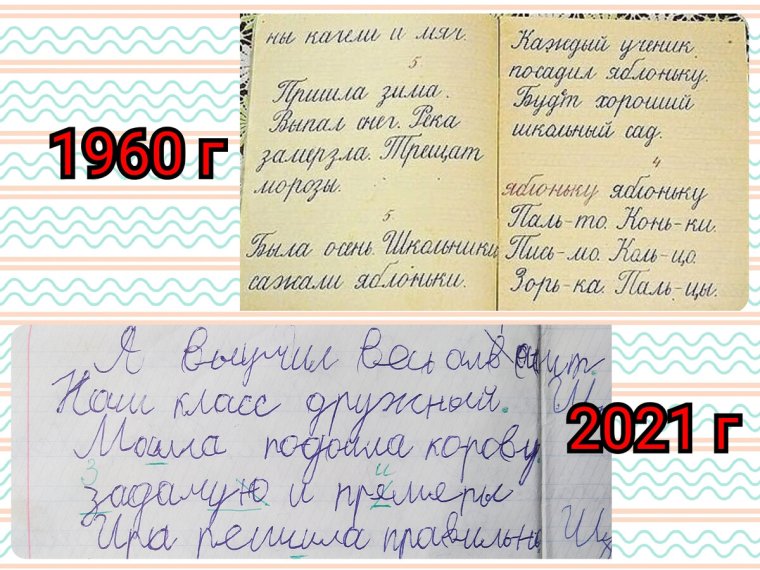 1960 г
ны качели и мяч.
5
Пришла зима.
Выпал снег. Река
замерзла. Трещат
морозы.
5
Была осень. Школьники
сажали яблоньки.
Каждый ученик
посадил яблоньку.
Будет хороший
школьный сад.
4
яблоньку яблоньку
Паль-то. Конь-ки.
Пись-мо. Коль-цо.
Зорь-ка. Паль-цы.
2021 г
Я выучил весь
Наш класс дружный.
подоила корову.
З и
и прямеры
Ира решила правильно